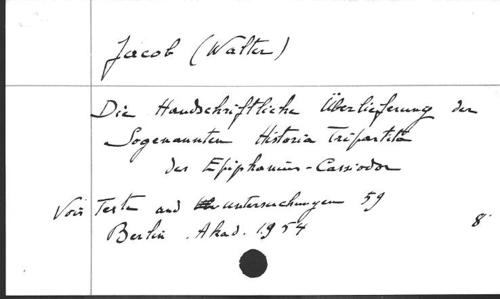 Jacob (Walter)
Die Handschriftliche Überlieferung der
Sogenannten Historia Tripartita
des Epiphanius-Cassiodor
Voir Texte and untersuchungen 59
Berlin Akad. 1954
8°